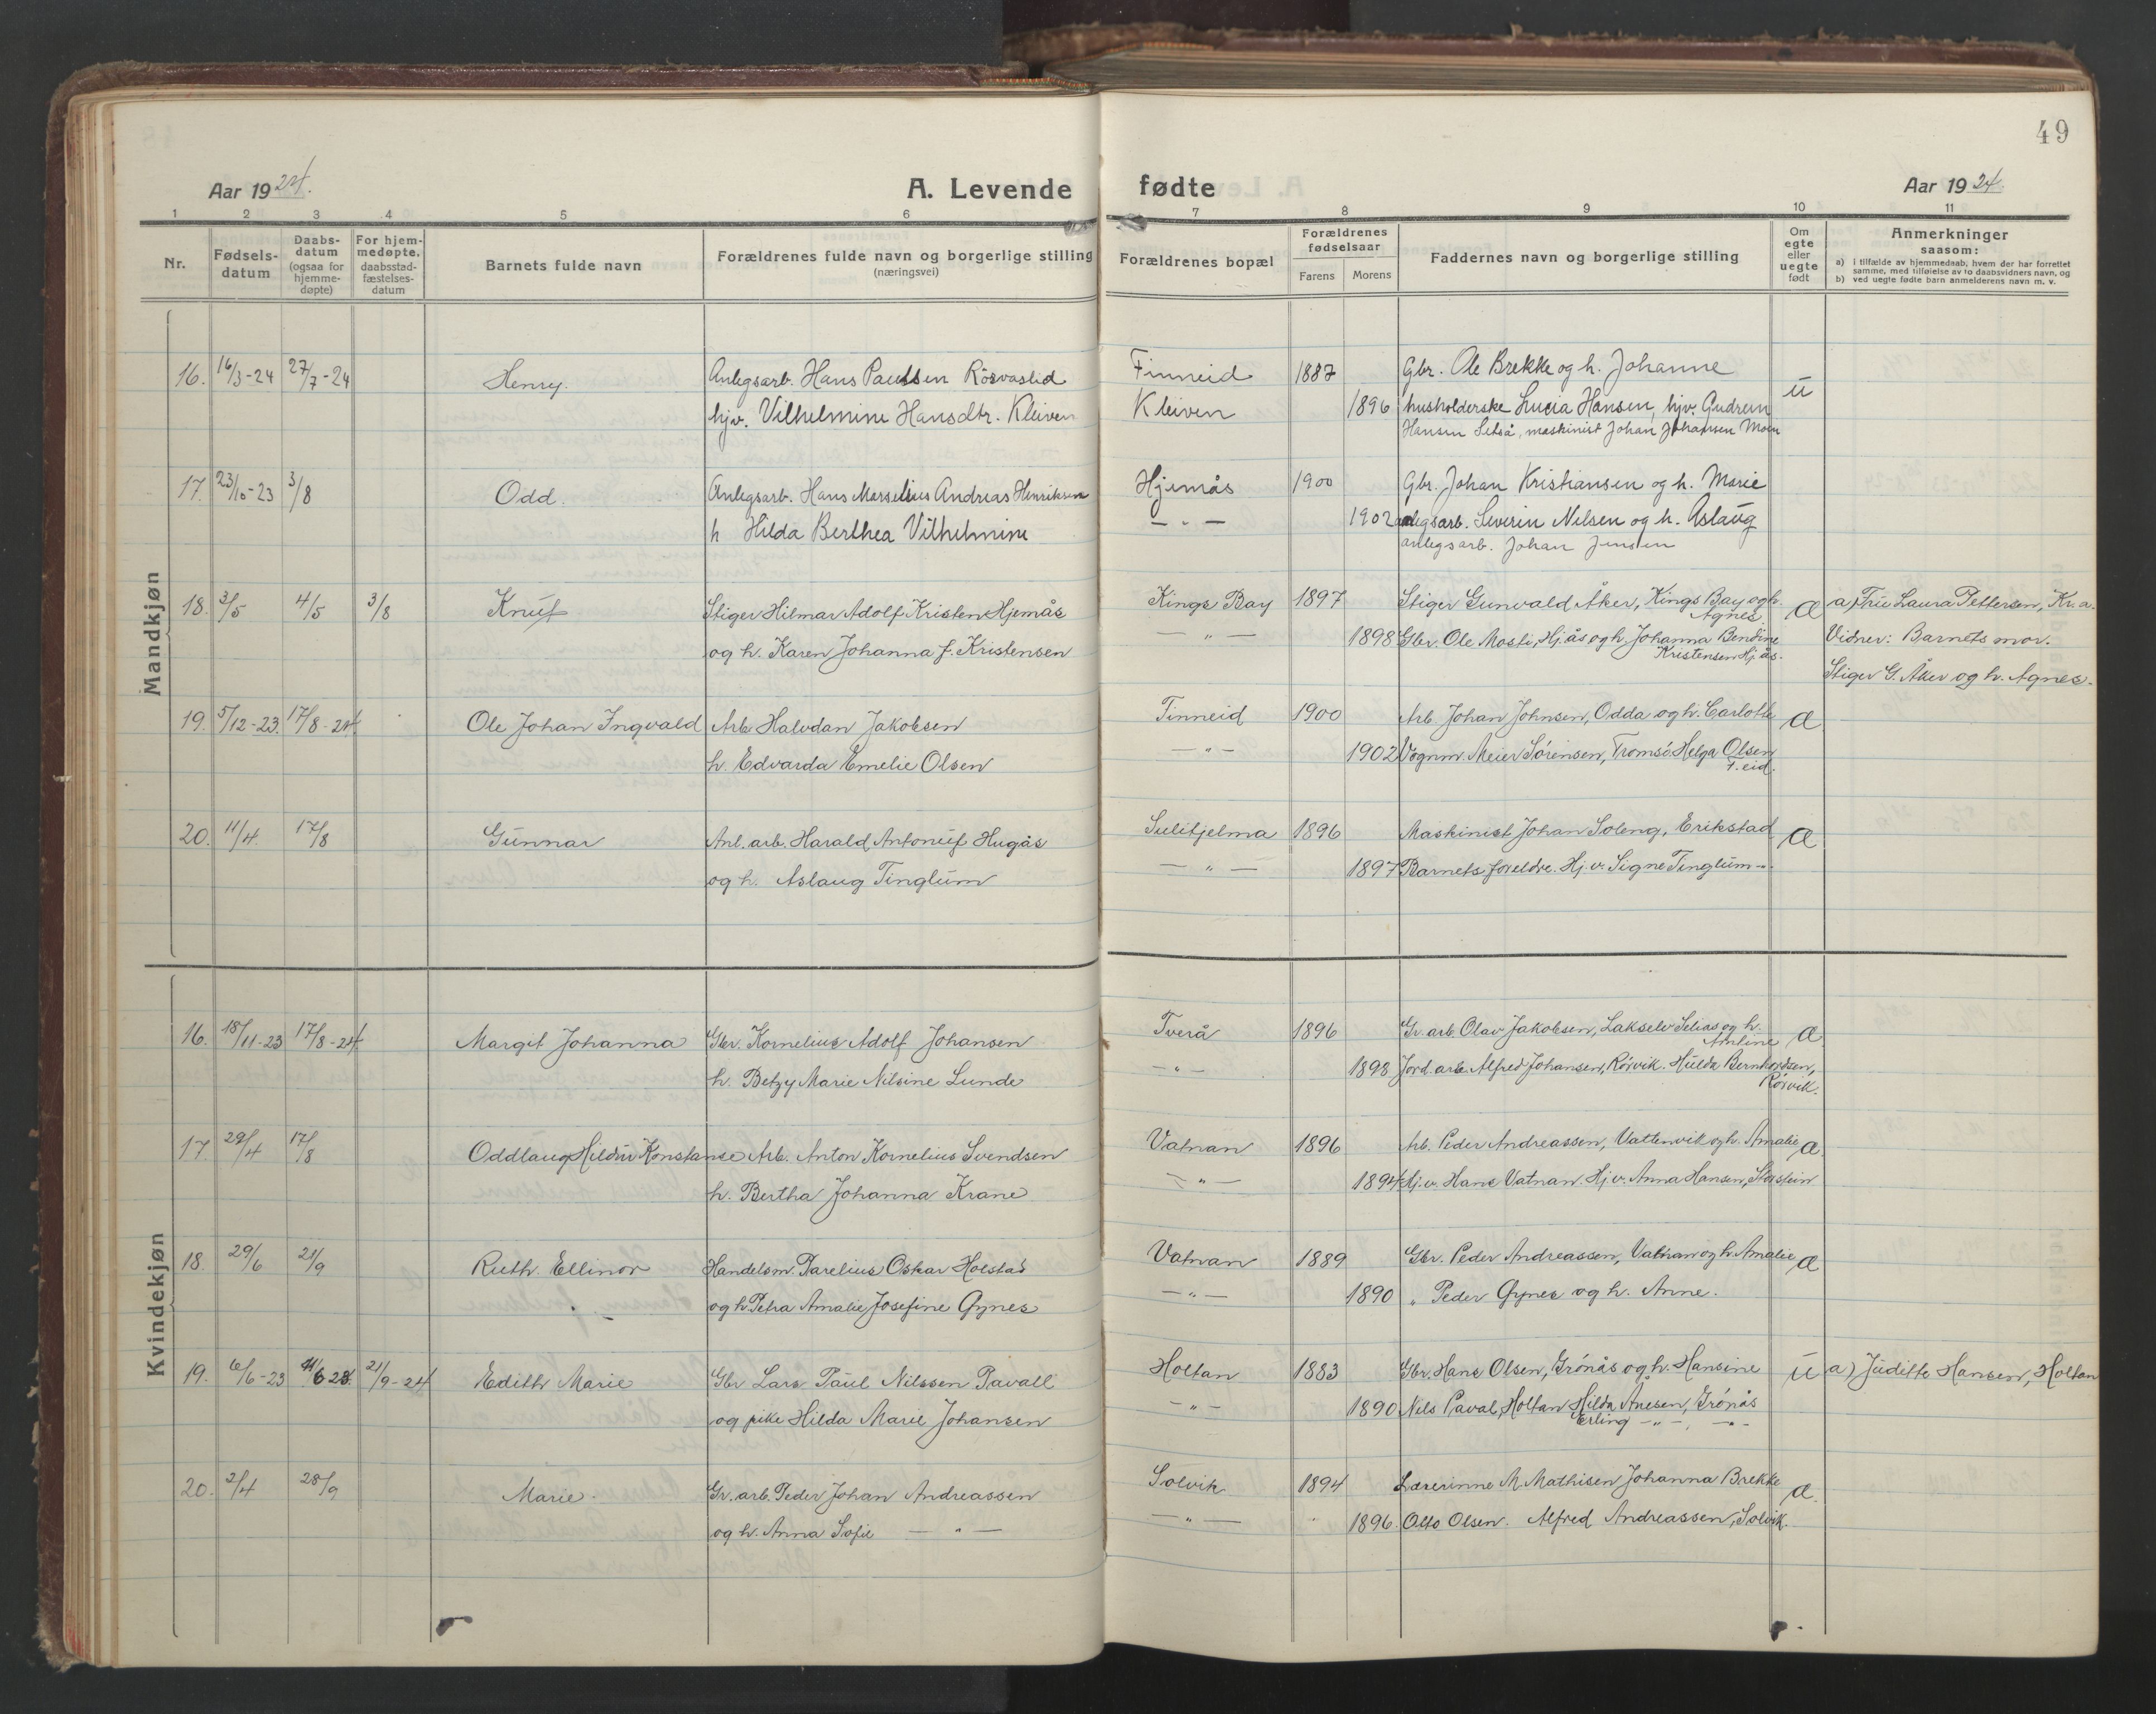 49
Aar 1924.
A. Levende fødte
Aar 1924.
1 2 3 4 5 6 7 8 9 10 11
Nr.
Fødsels-datum
Daabs-datum (ogsaa for hjemme-døpte)
For hjem-medøpte, daabsstad-fæstelses-datum
Barnets fulde navn
Forældrenes fulde navn og borgerlige stilling (næringsvei)
Forældrenes bopæl
Forældrenes fødselsaar
Farens Morens
Faddernes navn og borgerlige stilling
Om egte eller uegte født
Anmerkninger saasom:
a) i tilfælde av hjemmedaab, hvem der har forrettet samme, med tilføielse av to daabsvidners navn, og
b) ved uegte fødte barn anmelderens navn m. v.
Mandkjøn
16. 16/3-24 27/7-24 Henry. Anlegsarb. Hans Paulsen Rösvaslid Finneid 1887 Gbr. Ole Brekke og h. Johanne u
hjv. Vilhelmine Hansdtr. Kleiven Kleiven 1896 husholderske Lucia Hansen, hjv. Gudrun
Hansen Setså, maskinist Johan Johansen Moen
17. 23/10-23 3/8 Odd. Anlegsarb. Hans Marselius Andreas Henriksen Hjemås 1900 Gbr. Johan Kristiansen og h. Marie
h Hilda Berthea Vilhelmine — " — 1902 anlegsarb. Severin Nilsen og h. Aslaug
anlegsarb. Johan Jensen
18. 3/5 4/5 3/8 Knut Stiger Hilmar Adolf Kristen Hjemås Kings Bay 1897 Stiger Gunvald Åker, Kings Bay og h. Agnes. a) Fru Laura Pettersen, Kr.a.
og h. Karen Johanna f. Kristensen — " — 1898 Gbr. Ole Mosti, Hj.ås og h. Johanna Bendine Vidner: Barnets mor.
Kristensen Hj.ås.
Stiger G. Åker og h. Agnes.
19. 5/12-23. 17/8-24. Ole Johan Ingvald Arb. Halvdan Jakobsen Finneid 1900 Arb. Johan Johnsen, Odda og h. Carlotte
h. Edvarda Emelie Olsen — " — 1902 Vognm. Meier Sørensen, Tromsö Helga Olsen
F.eid.
20. 11/4. 17/8 Gunnar Anl. arb. Harald Antonuf Hugås Sulitjelma 1896 Maskinist Johan Soleng, Erikstad
og h. Aslaug Tinglum — " — 1897 Barnets foreldre. Hj.v. Signe Tinglum -"-
Kvindekjøn
16. 18/11-23 17/8-24. Margit Johanna Gbr. Kornelius Adolf Johansen Tverå 1896 Gr. arb. Olav Jakobsen, Lakselv og h.
h. Betzy Marie Nilsine Lunde — " — 1898 Jord. arb. Alfred Johansen, Rörvik. Hulda Bernhardsen,
Rörvik.
17. 29/4 17/8 Oddlaug Hildur Konstanse Arb. Anton Kornelius Svendsen Vatnan 1896 Arb. Peder Andreassen, Vattenvik og h. Amalie
h. Bertha Johanna Krane — " — 1894 Hj.v. Hans Vatnan. Hj.v. Anna Hansen, Storstein
18. 29/6 21/9 Ruth Ellinor Handelsm. Parelius Oskar Holstad Vatnan 1889 Gbr. Peder Andreassen, Vatnan og h. Amalie
og h. Petra Amalie Josefine Gynes — " — 1890 " Peder Gynes og h. Anne.
19. 6/6-23 11/6 23. 21/9-24 Edith Marie Gbr Lars Paul Nilssen Pavall Holtan 1883 Gbr. Hans Olsen, Grönås og h. Hansine u a) Juditte Hansen, Holtan
og pike Hilda Marie Johansen — " — 1890 Nils Paval, Holtan Hilda Ånesen, Grönås
Erling — " —, — " —
20. 2/4 28/9 Marie. Gr. arb. Peder Johan Andreassen Solvik 1894 Lærerinne M. Mathisen Johanna Brekke
og h. Anna Sofie — " — — " — 1896. Otto Olsen. Alfred Andreassen, Solvik.